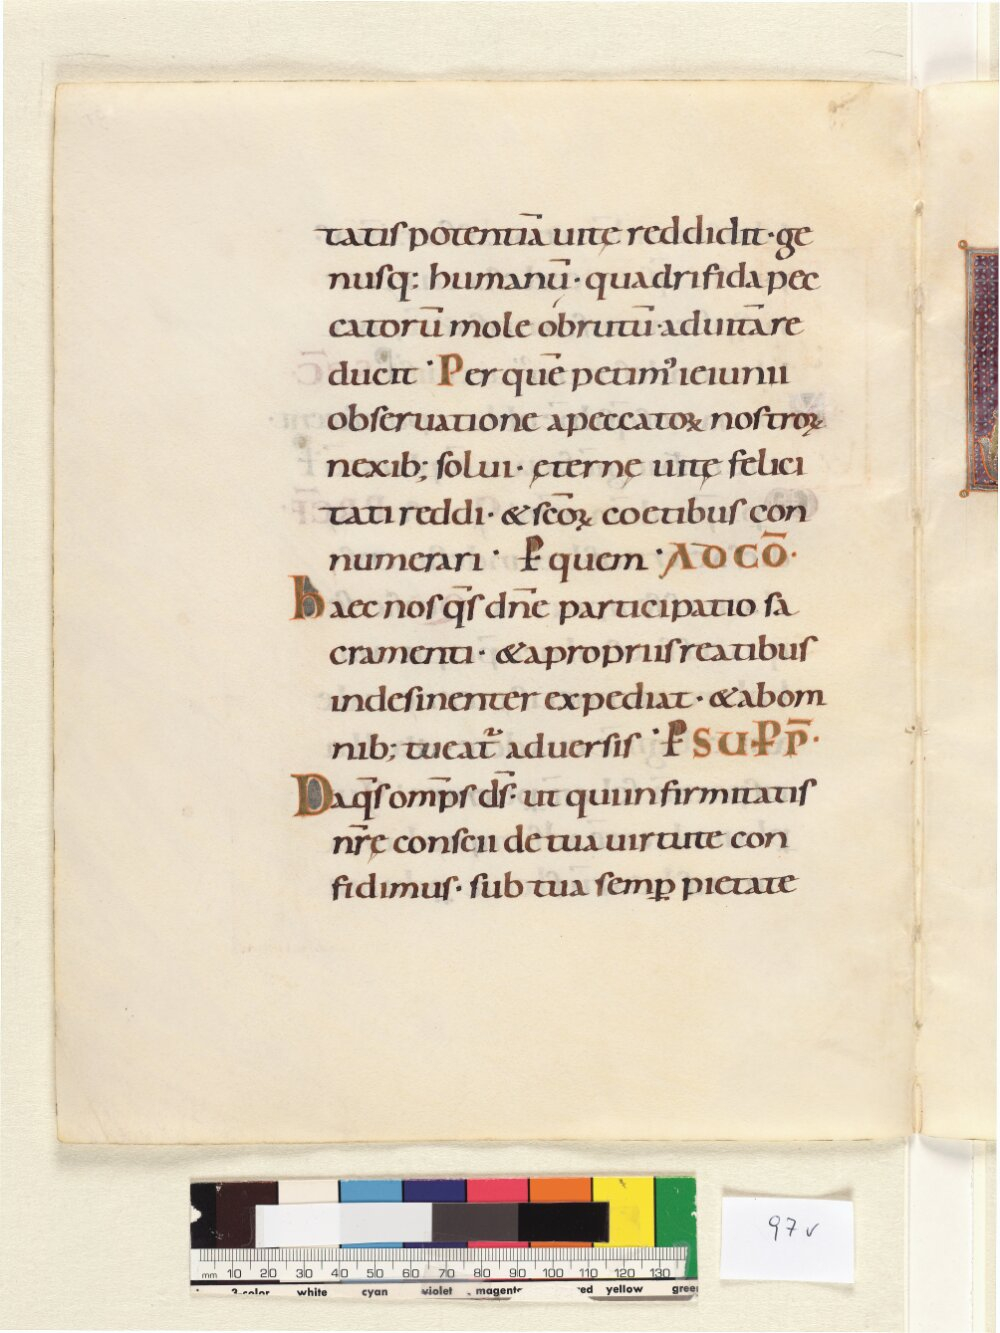 tatis potentiā uitę reddidit· ge
nusq: humanū· quadrifida pec
catorū mole obrutū· aduitā re
ducit· Per quē petim᾿ ieiunii
obseruatione apeccatoꝝ nostroꝝ
nexib; solui· ęternę uitę felici
tati reddi· & scōꝝ coetibus con
numerari· P quem· AD CŌ·
haec nos q̄s dn̄e participatio sa
cramenti· & apropriis reatibus
indesinenter expediat· & abom
nib; tueat̄ aduersis· P SUP PP̄·
Da q̄s omp̄s ds̄· ut qui infirmitatis
nr̄ę conscii de tua uirtute con
fidimus· sub tua semꝑ pietate
97v
mm 10 20 30 40 50 60 70 80 90 100 110 120 130
3-color white cyan violet magenta red yellow green